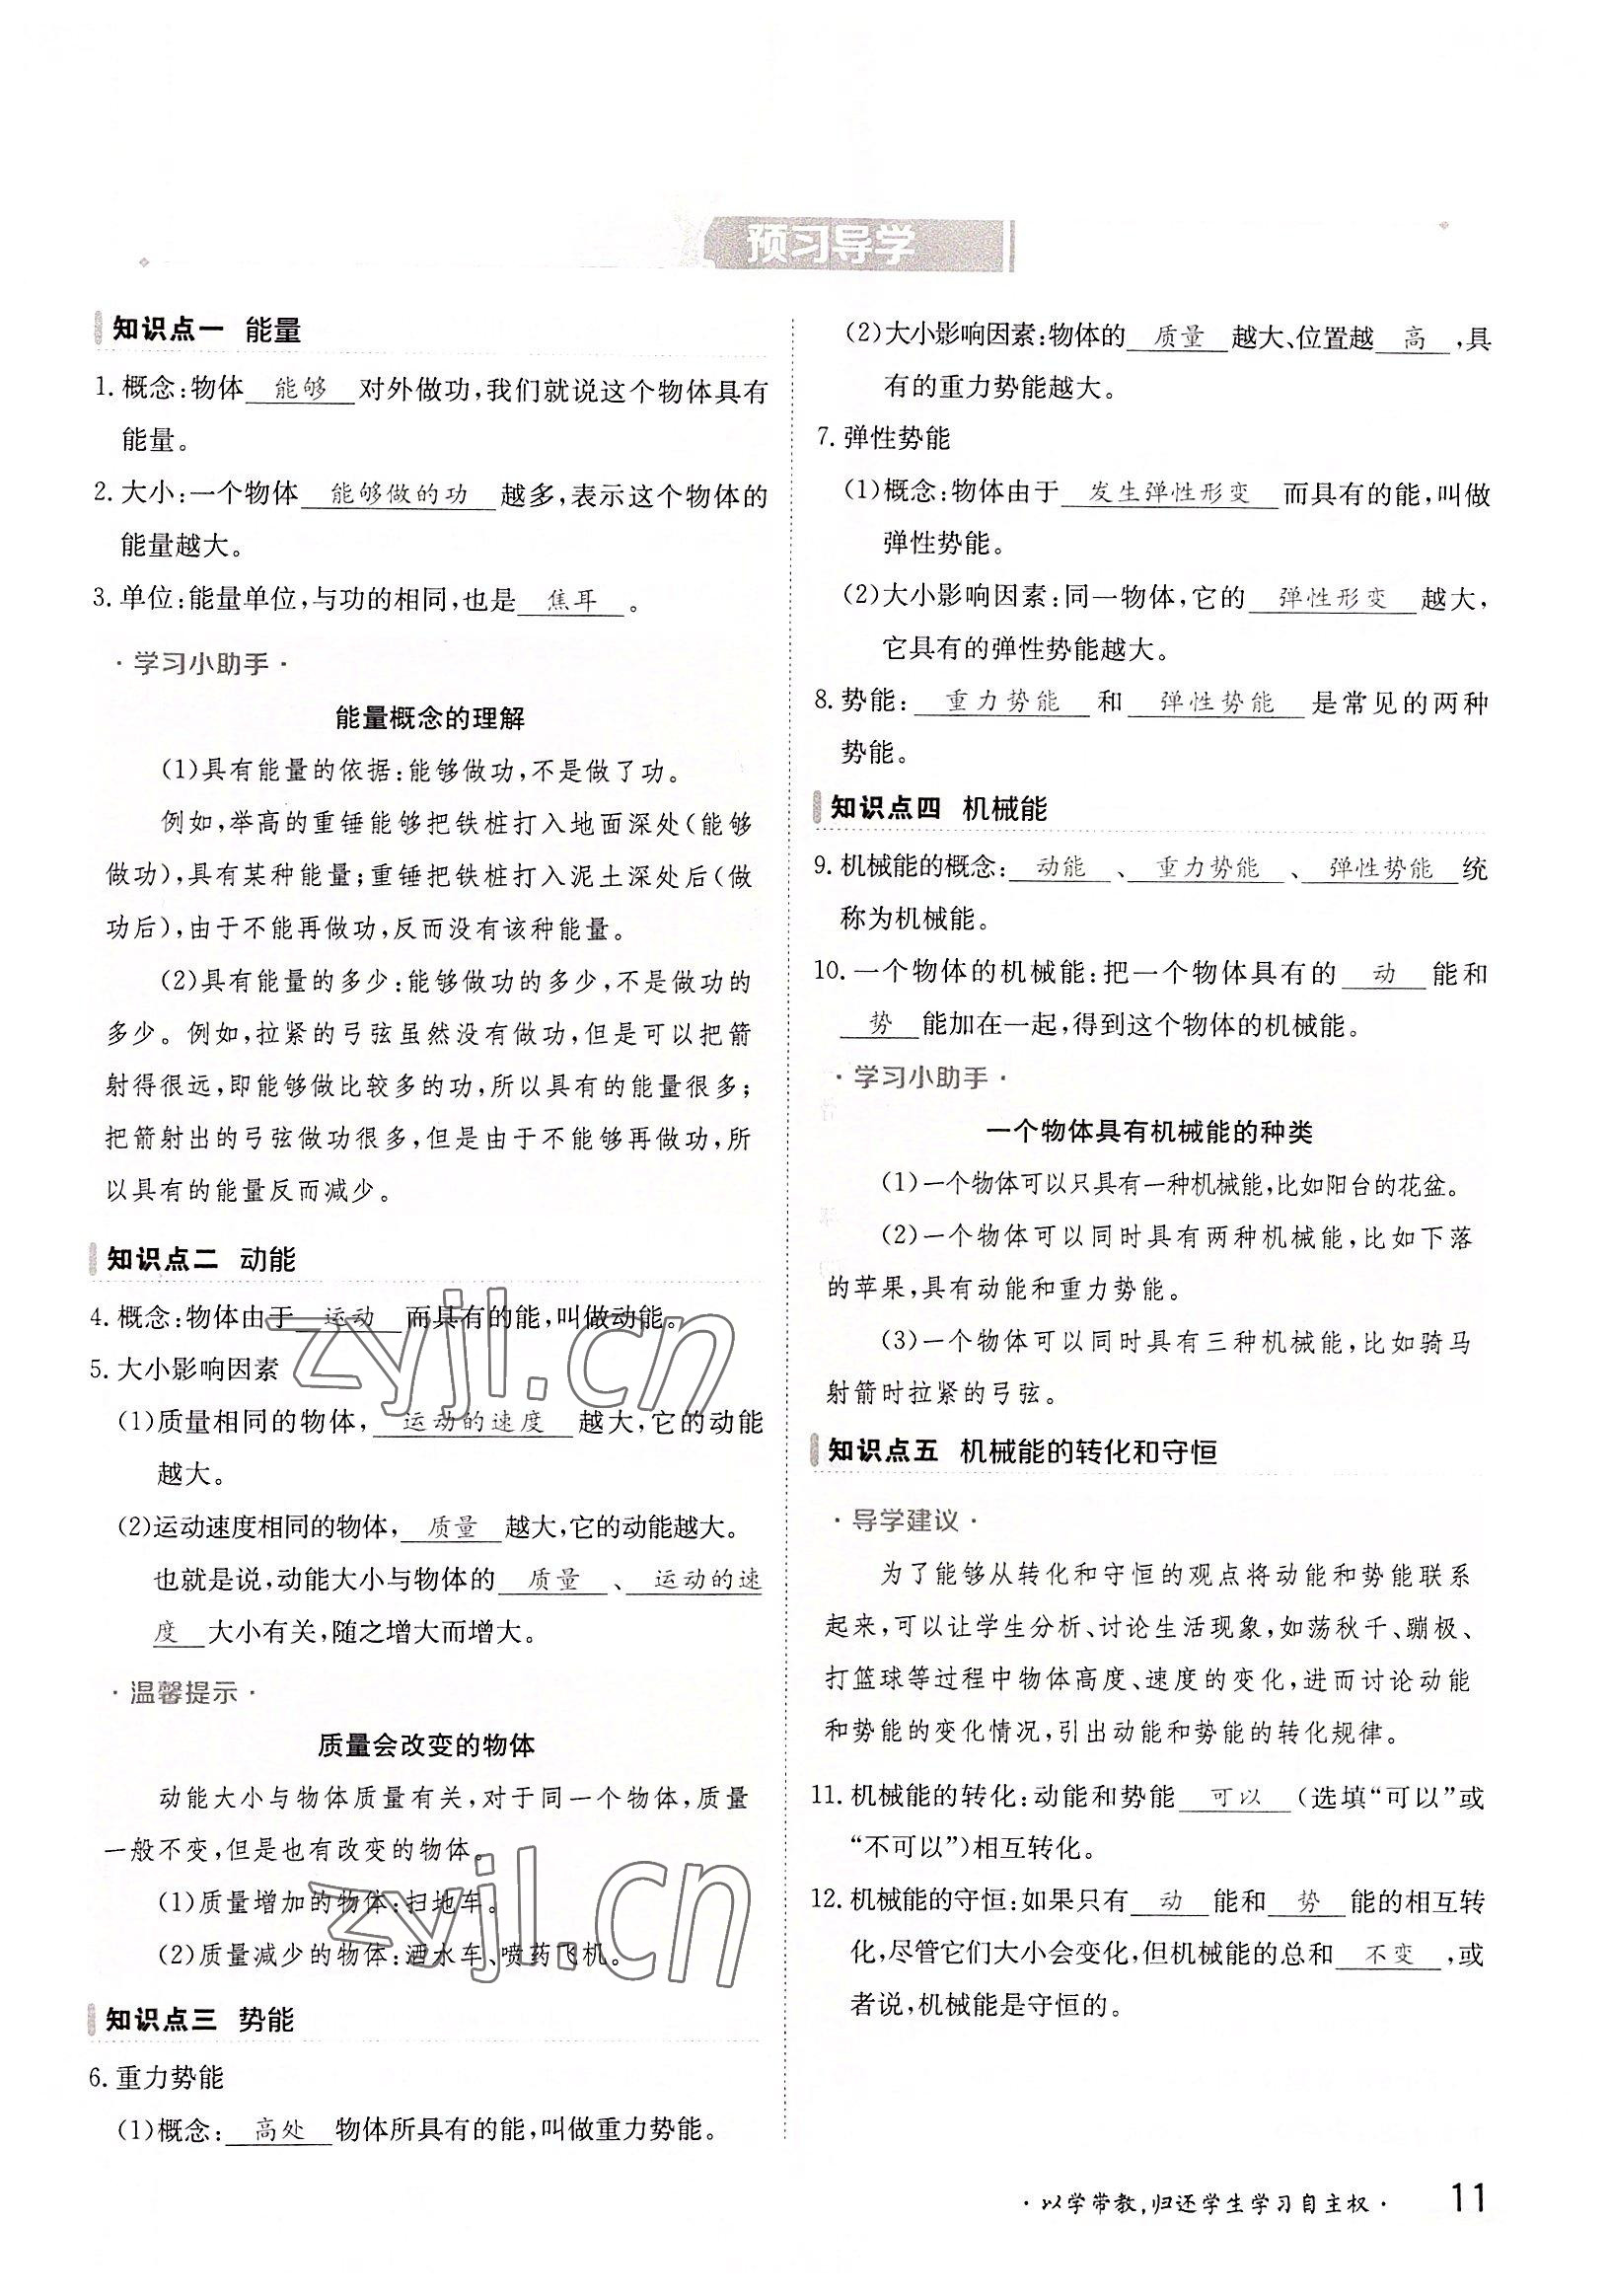 预习导学
知识点一 能量
1. 概念:物体 能够 对外做功,我们就说这个物体具有
能量。
2. 大小:一个物体 能够做的功 越多,表示这个物体的
能量越大。
3. 单位:能量单位,与功的相同,也是 焦耳 。
· 学习小助手 ·
能量概念的理解
(1)具有能量的依据:能够做功,不是做了功。
例如,举高的重锤能够把铁桩打入地面深处(能够
做功),具有某种能量;重锤把铁桩打入泥土深处后(做
功后),由于不能再做功,反而没有该种能量。
(2)具有能量的多少:能够做功的多少,不是做功的
多少。例如,拉紧的弓弦虽然没有做功,但是可以把箭
射得很远,即能够做比较多的功,所以具有的能量很多;
把箭射出的弓弦做功很多,但是由于不能够再做功,所
以具有的能量反而减少。
知识点二 动能
4. 概念:物体由于 运动 而具有的能,叫做动能。
5. 大小影响因素
(1)质量相同的物体, 运动的速度 越大,它的动能
越大。
(2)运动速度相同的物体, 质量 越大,它的动能越大。
也就是说,动能大小与物体的 质量 、 运动的速
度 大小有关,随之增大而增大。
· 温馨提示 ·
质量会改变的物体
动能大小与物体质量有关,对于同一个物体,质量
一般不变,但是也有改变的物体。
(1)质量增加的物体:扫地车。
(2)质量减少的物体:洒水车、喷药飞机。
知识点三 势能
6. 重力势能
(1)概念: 高处 物体所具有的能,叫做重力势能。
(2)大小影响因素:物体的 质量 越大、位置越 高 ,具
有的重力势能越大。
7. 弹性势能
(1)概念:物体由于 发生弹性形变 而具有的能,叫做
弹性势能。
(2)大小影响因素:同一物体,它的 弹性形变 越大,
它具有的弹性势能越大。
8. 势能: 重力势能 和 弹性势能 是常见的两种
势能。
知识点四 机械能
9. 机械能的概念: 动能 、 重力势能 、 弹性势能 统
称为机械能。
10. 一个物体的机械能:把一个物体具有的 动 能和
势 能加在一起,得到这个物体的机械能。
· 学习小助手 ·
一个物体具有机械能的种类
(1)一个物体可以只具有一种机械能,比如阳台的花盆。
(2)一个物体可以同时具有两种机械能,比如下落
的苹果,具有动能和重力势能。
(3)一个物体可以同时具有三种机械能,比如骑马
射箭时拉紧的弓弦。
知识点五 机械能的转化和守恒
· 导学建议 ·
为了能够从转化和守恒的观点将动能和势能联系
起来,可以让学生分析、讨论生活现象,如荡秋千、蹦极、
打篮球等过程中物体高度、速度的变化,进而讨论动能
和势能的变化情况,引出动能和势能的转化规律。
11. 机械能的转化:动能和势能 可以 (选填“可以”或
“不可以”)相互转化。
12. 机械能的守恒:如果只有 动 能和 势 能的相互转
化,尽管它们大小会变化,但机械能的总和 不变 ,或
者说,机械能是守恒的。
zyjl.cn
zyjl.cn
· 以学带教,归还学生学习自主权 · 11